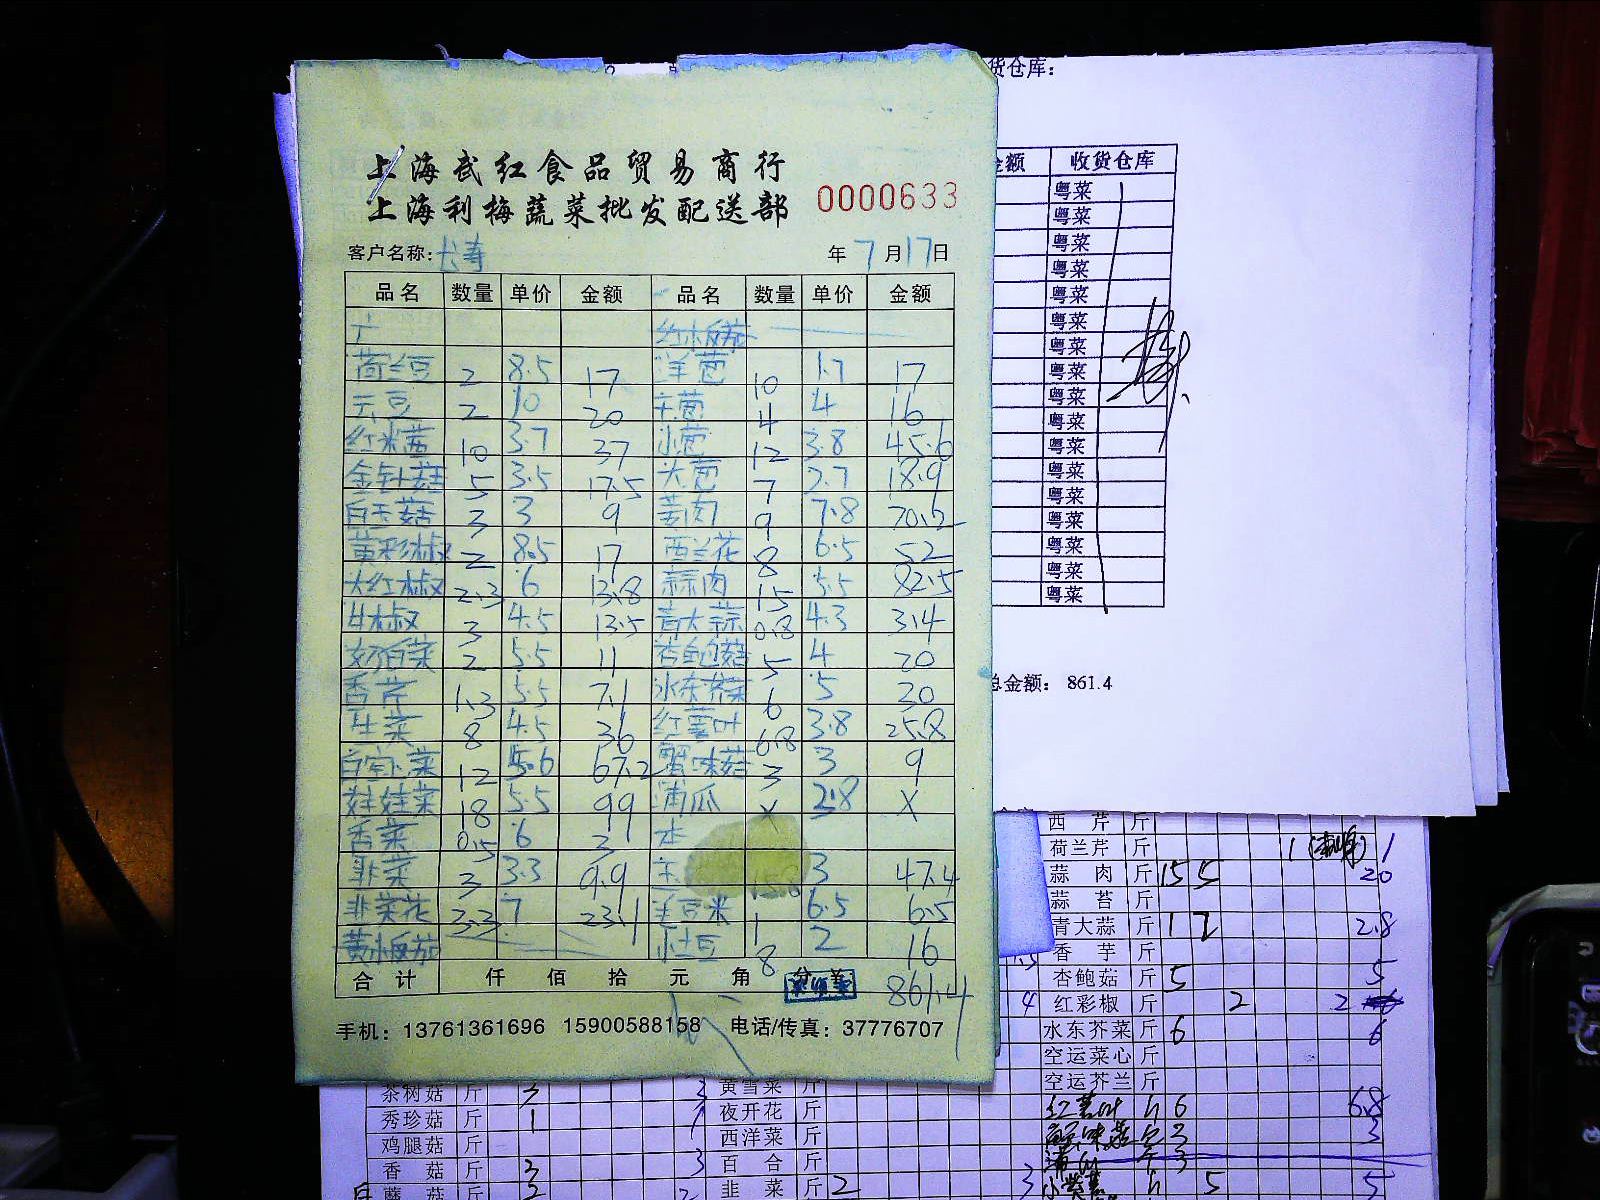 货仓库：
上海武红食品贸易商行
上海利梅蔬菜批发配送部 0000633
客户名称：长寿 年 7 月 17 日
品名 数量 单价 金额 品名 数量 单价 金额
荷兰豆 2 8.5 17 洋葱 10 1.7 17
2 10 20 4 4 16
红米苋 10 3.7 37 小葱 12 3.8 45.6
金针菇 5 3.5 17.5 大葱 7 2.7 18.9
白玉菇 3 3 9 姜肉 9 7.8 70.2
黄彩椒 2 8.5 17 西兰花 8 6.5 52
大红椒 2.3 6 13.8 蒜肉 15 5.5 82.5
3 4.5 13.5 青大蒜 0.8 4.3 3.4
奶白菜 2 5.5 11 杏鲍菇 5 4 20
香芹 1.3 5.5 7.1 水东芥菜 6 5 30
生菜 8 4.5 36 红薯叶 6.8 3.8 25.8
12 5.6 67.2 蟹味菇 3 3 9
娃娃菜 18 5.5 99 浦瓜 X 2.8 X
香菜 0.5 6 3
韭菜 3 3.3 9.9 3 47.4
韭菜花 3.3 7 23.1 毛豆米 1 6.5 6.5
8 2 16
合计 仟 佰 拾 元 角 分 861.4
手机：13761361696 15900588158 电话/传真：37776707
金额 收货仓库
粤菜
粤菜
粤菜
粤菜
粤菜
粤菜
粤菜
粤菜
粤菜
粤菜
粤菜
粤菜
粤菜
粤菜
粤菜
粤菜
粤菜
总金额： 861.4
西芹 斤
荷兰芹 斤 1 1
蒜肉 斤 15 5 20
蒜苔 斤
青大蒜 斤 1 2 2.8
香芋 斤
杏鲍菇 斤 5 5
4 红彩椒 斤 2 2
水东芥菜 斤 6 6
空运菜心 斤
空运芥兰 斤
红薯叶 斤 6 6.8
蟹味菇 斤 3 3
5 5
茶树菇 斤 3 3 黄雪菜 斤
秀珍菇 斤 1 1 夜开花 斤
鸡腿菇 斤 西洋菜 斤
香菇 斤 3 3 百合 斤
蘑菇 斤 2 2 韭菜 斤 2 3